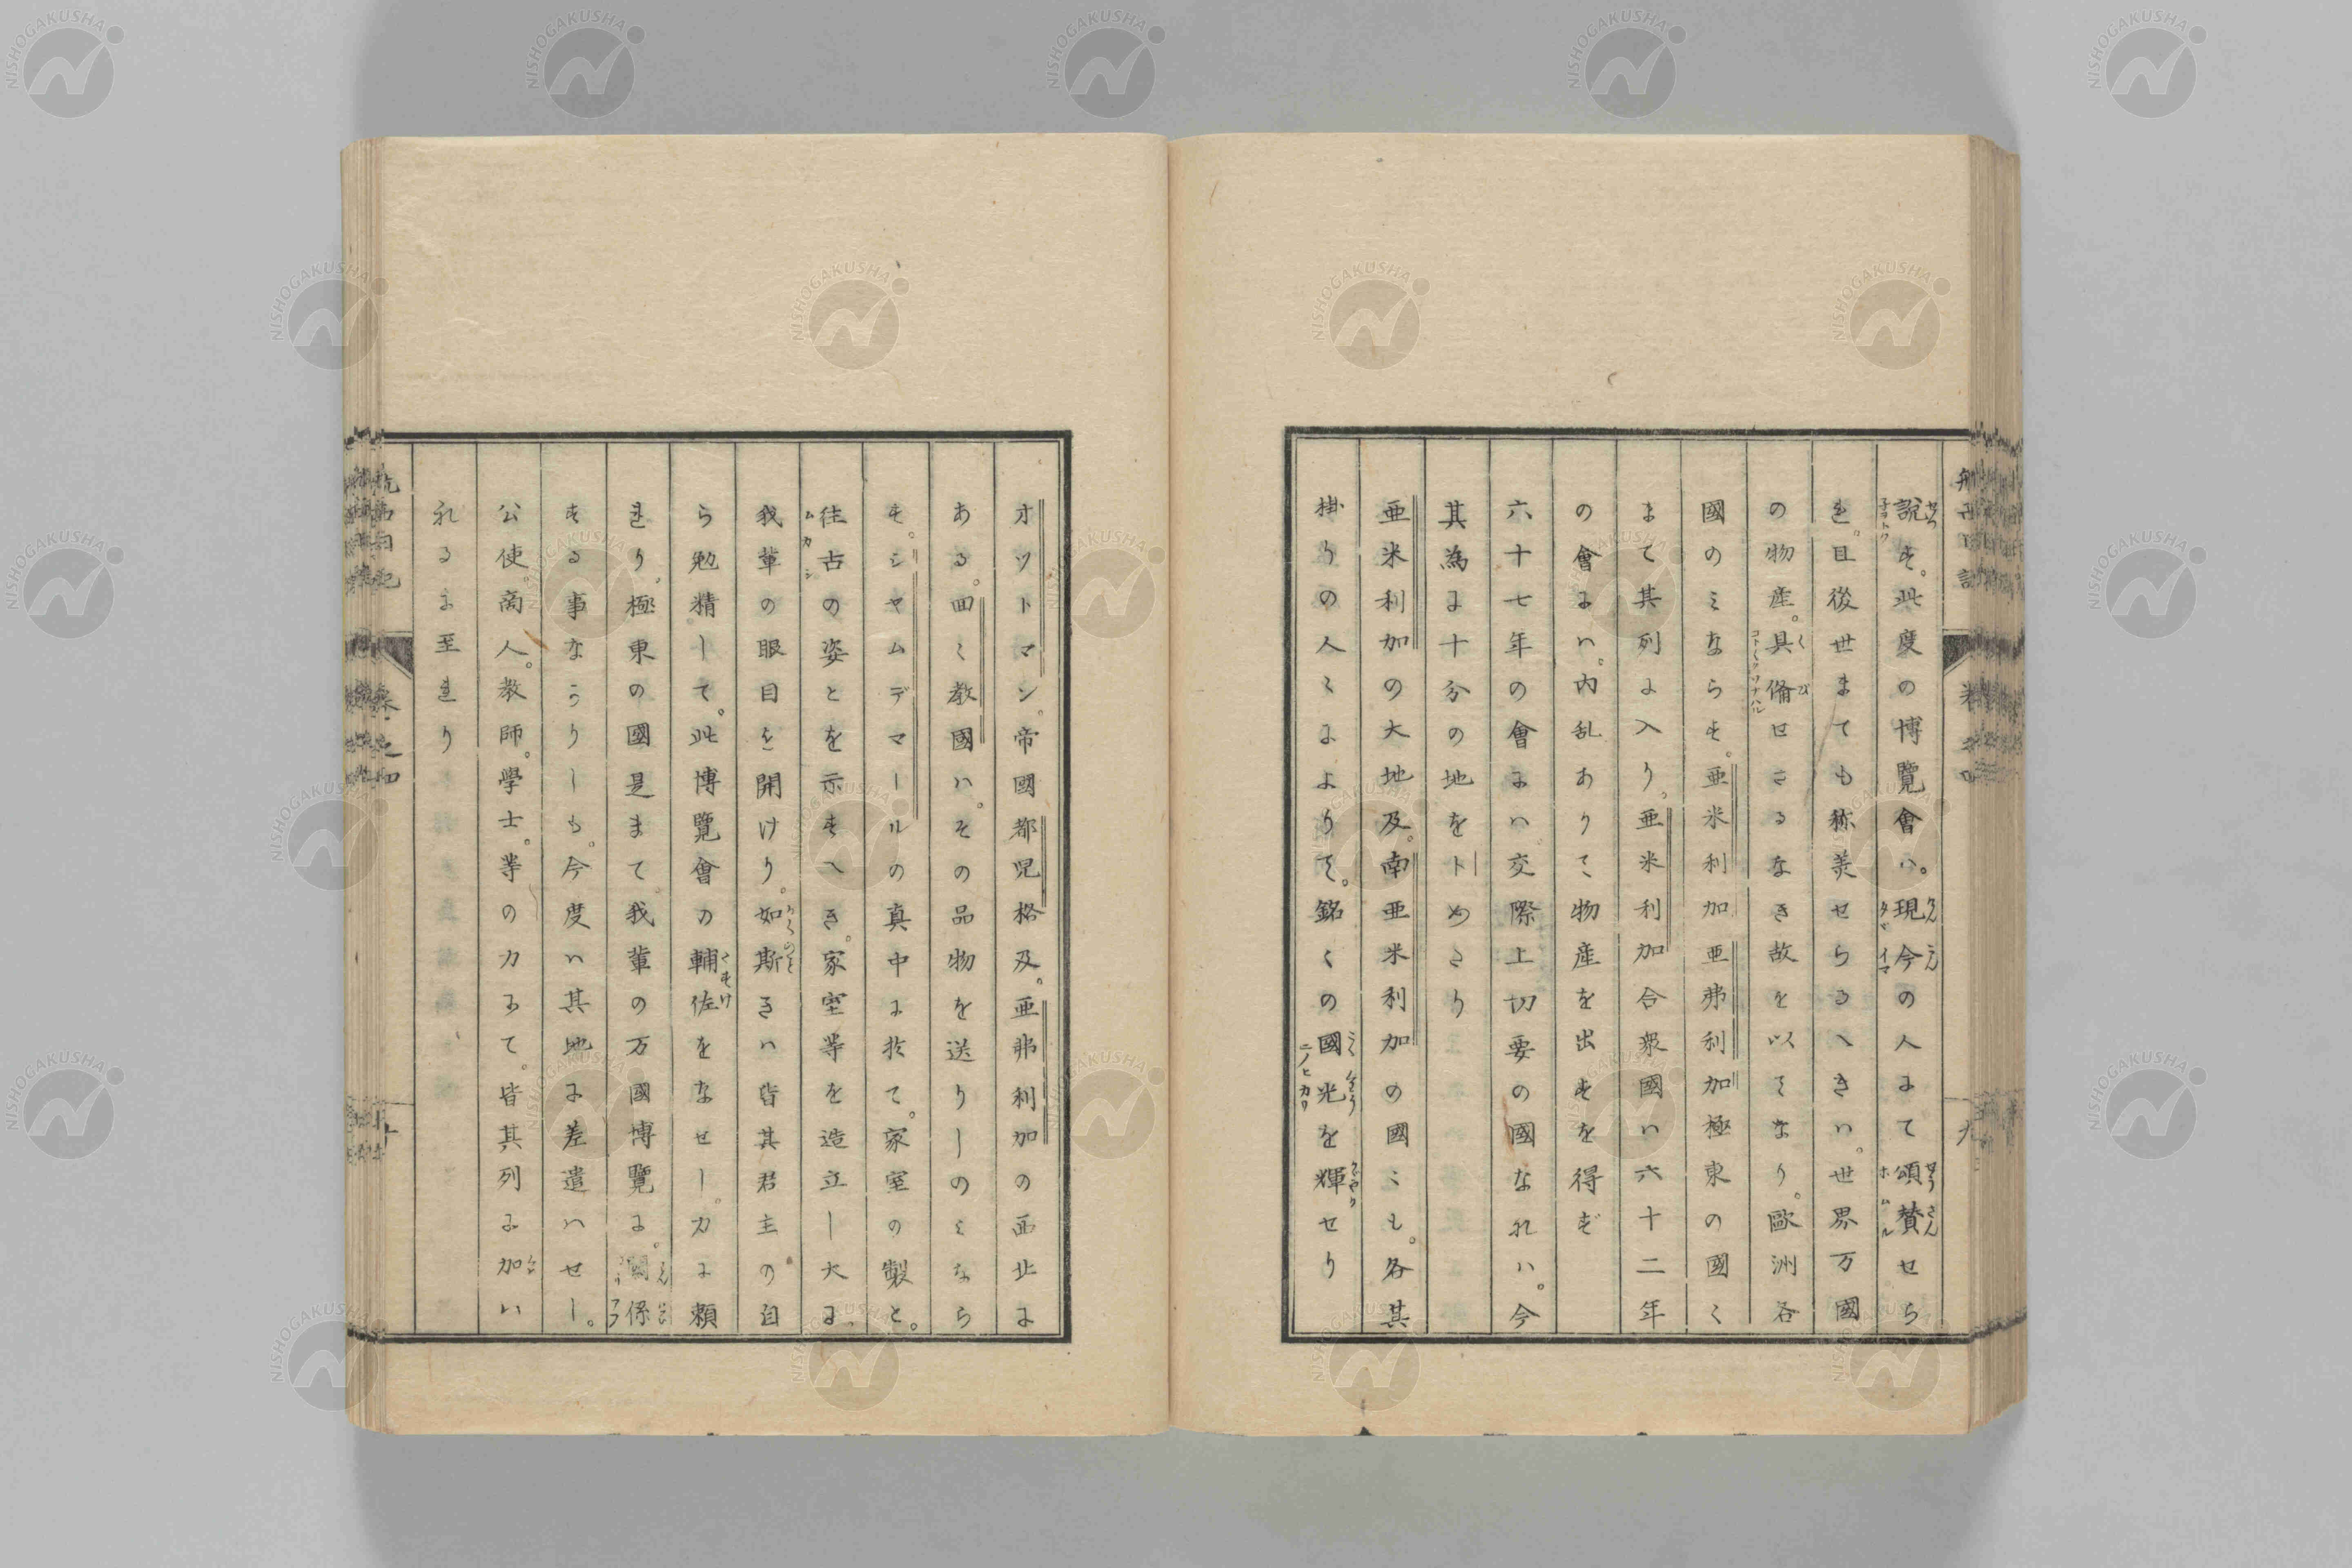 説す。此度の博覽會ハ。現今の人まて頌賛せら
れ。且後世まても称美せらるへきハ。世界万國
の物産。具備せさるなき故を以てなり。歐洲各
國のミならす。亜米利加亜弗利加極東の國く
まて其列に入り。亜米利加合衆國ハ六十二年
の會にハ。内乱ありて物産を出すを得ず
六十七年の會にハ。交際上切要の國なれハ。今
其為に十分の地をトめさり
亜米利加の大地及。南亜米利加の國〻も。各其
掛りの人〻によりて。銘〻の國光を輝せり
オツトマン。帝國都児格及。亜弗利加の西北に
ある。回〻教國ハ。その品物を送りしのミなら
す。シヤムデマールの真中に於て。家室の製と。
往古の姿とを示すへき。家室等を造立し大に。
我輩の眼目を開けり。如斯きハ皆其君主の自
ら勉精して。此博覽會の輔佐をなせし。力に頼
れり。極東の國是まて。我輩の万國博覽に。関係
する事なかりしも。今度ハ其地に差遣ハせし。
公使。商人。教師。學士。等の力にて。皆其列に加ハ
れるに至れり